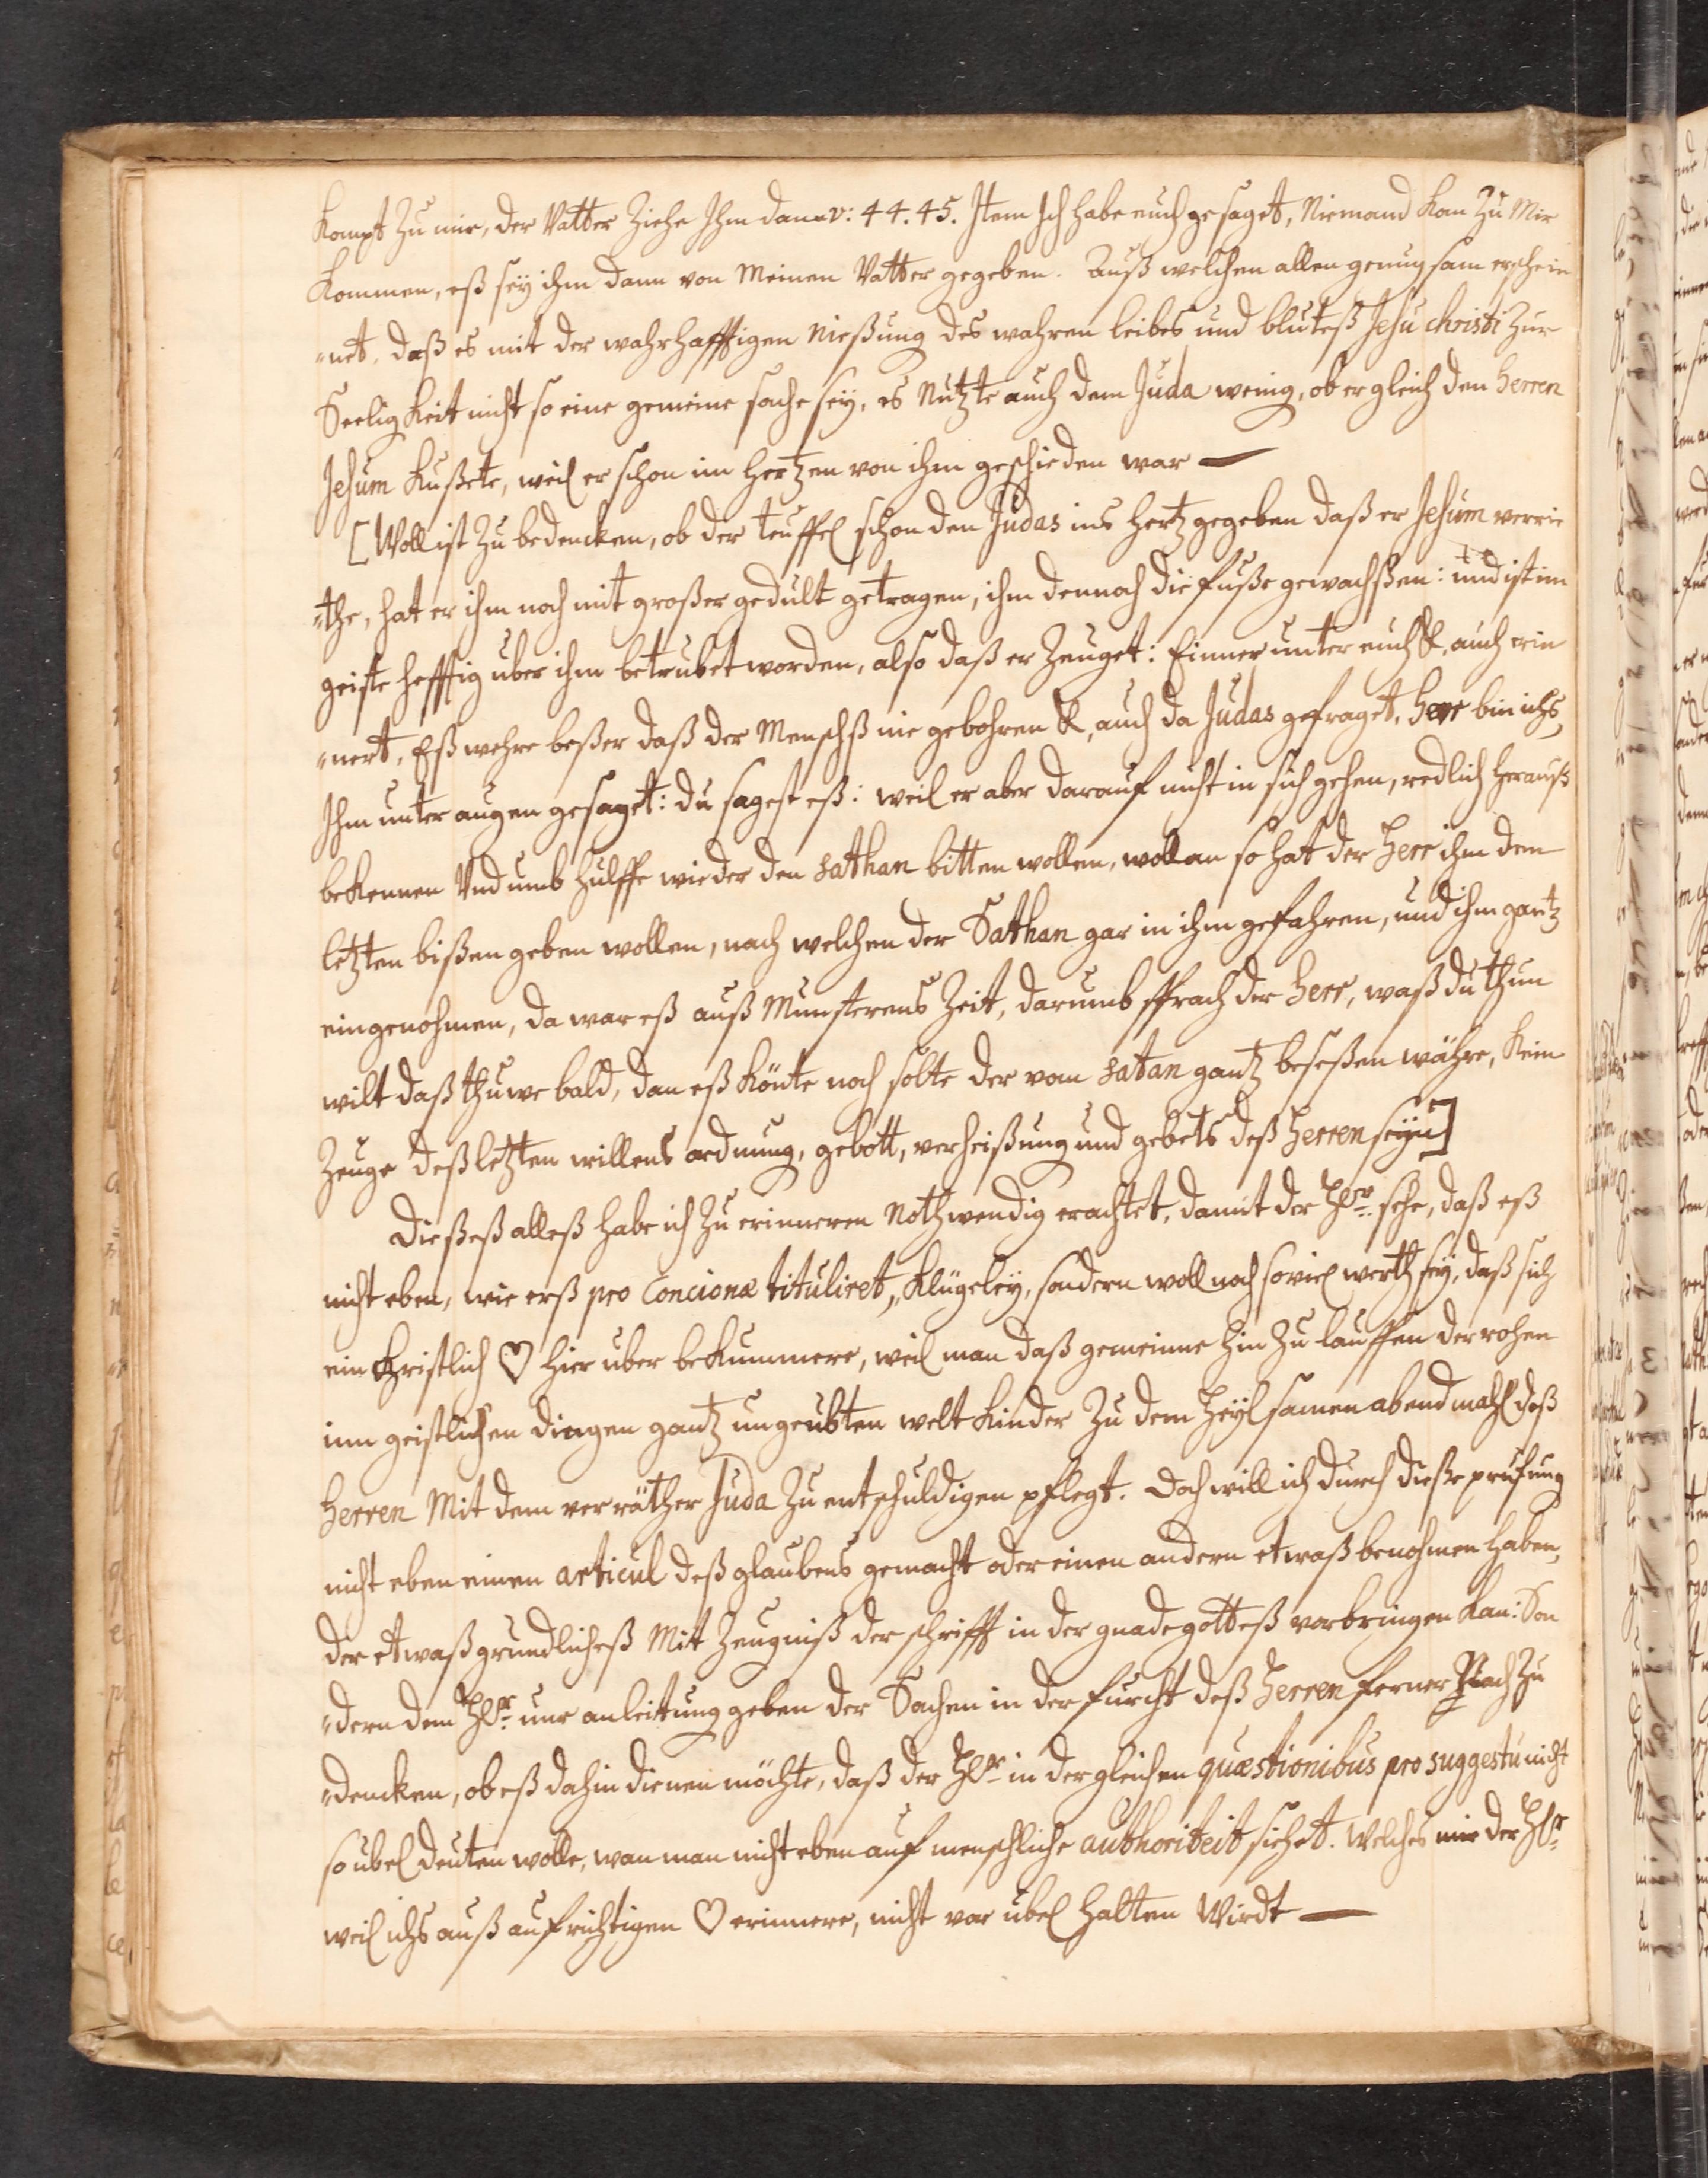 kompt zu mir, der Vatter Ziehe Ihm dann v: 44. 45. Item Ich habe euch gesaget, Niemand kan zu Mir
kommen, eß sey ihm dann von Meinen Vatter gegeben. Auß welchen allen genugsam erschein
"net, daß es mit der wahrhafftigen Nießung des wahren leibes und bluteß Jesu christi zur
Seeligkeit nicht so eine gemeine sache sey, es Nutzte auch dem Juda wenig, ob er gleich den Herren
Jesum kußete, weil er schon im Hertzen von ihm geschieden war —
[Woll ist zu bedencken, ob der teuffel schon den Judas ins Hertz gegeben daß er Jesum verrie
"the, hat er ihm noch mit großer gedult getragen, ihm dennoch die fuße gewaschßen: und ist im
geiste hefftig uber ihm betrubet worden, also daß er zeuget: Einner unter euch &, auch erin
"nert, Eß wehre beßer daß der Menschß nie gebohren &, auch da Judas gefraget, Herr bin ichs,
Ihm unter augen gesaget: du sagest eß: weil er aber darauf nicht in sich gehen, redlich herauß
bekennen Und umb hulffe wieder den sathan bitten wollen, wollan so hat der Herr ihm den
letzten bißen geben wollen, nach welchen der Sathan gar in ihm gefahren, und ihm gantz
eingenohmen, da war eß auß Munsterens Zeit, darumb sprach der Herr, waß du thun
wilt daß thuwe bald, dan eß könte noch solte der vom satan gantz beseßen währe, kein
Zeuge deß letzten willens ordnung, gebott, verheißung und gebets deß Herren seyn]
Dießeß alleß habe ich zu erinneren Nothwendig erachtet, damit der Hr sehe, daß eß
nicht eben, wie erß pro Concione tituliret, Klügeley, sondern woll noch soviel werth sey, daß sich
ein Christlich ♡ hier uber bekummere, weil man daß gemeinne hin zu lauffen der rohen
inn geistlichen dingen gantz ungeubten welt kinder zu dem Heylsamen abendmahl deß
Herren Mit dem verräther Juda zu entschuldigen pflegt. Doch will ich durch dieße prufung
nicht eben einen articul deß glaubens gemacht oder einen andern etwaß benohmen haben,
der etwaß grundlicheß Mit Zeugniß der schrifft in der gnade gotteß vorbringen kan: Son
"dern dem Hr nur anleitung geben der Sachen in der furcht deß Herren ferner Nach zu
"dencken, ob eß dahin dienen möchte, daß der Hr in dergleichen quæstionibus pro suggestu nicht
so ubel deuten wolle, wan man nicht eben auf menschliche authoriteit siehet. Welches mir der Hr
weil ichs auß aufrichtigen ♡ erinnere, nicht vor ubel halten Wirdt —